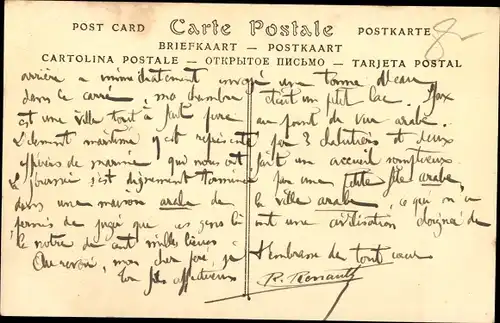 POST CARD Carte Postale POSTKARTE
BRIEFKAART — POSTKAART
CARTOLINA POSTALE — ОТКРЫТОЕ ПИСЬМО — TARJETA POSTAL
arrière a immédiatement envoyé une tonne d'eau
dans le carré, ma chambre était un petit lac. Sfax
est une ville tout à fait pure au point de vue arabe.
L'élément maritime y est représenté par 3 chalutiers et deux
officiers de marine qui nous ont fait un accueil somptueux.
La journée s'est dignement terminée par une petite fête arabe
dans une maison arabe de la ville arabe, ce qui m'a
permis de juger que ces gens là ont une civilisation éloignée de
la nôtre de cent mille lieues.
Au revoir, mon cher père, je t'embrasse de tout coeur
ton fils affectueux
R. Renault